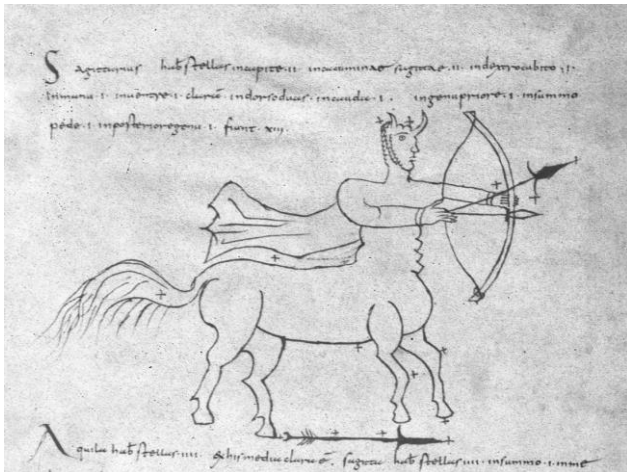 Sagittarius hab& stellas in capite ·ii· in cacumine sagittae ·ii· in dextro cubito ·i·
in manu ·i· in uentre ·i· claram in dorso duas in cauda ·i· in genu priore ·i· in summo
pede ·i· in posteriore genu ·i· fiunt xiii·
Aquila hab& stellas iiii· & his media clara ē· sagitta hab& stellas iiii· in summo ·i· in me